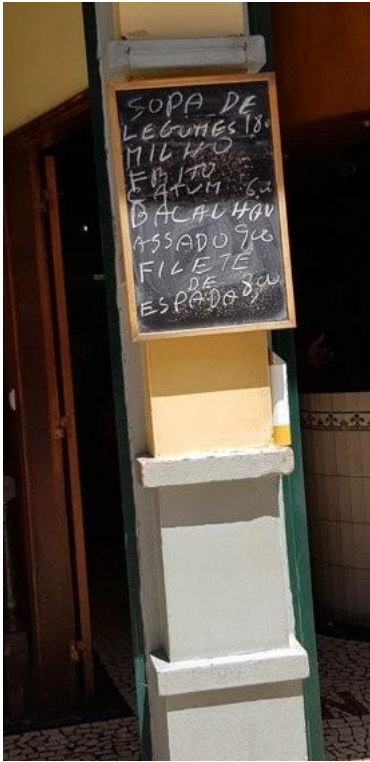 SOPA DE
LEGUMES 1,80
MILHO
FRITO
C ATUM 6,00
BACALHAU
ASSADO 9,00
FILETE
DE
ESPADA 8,00